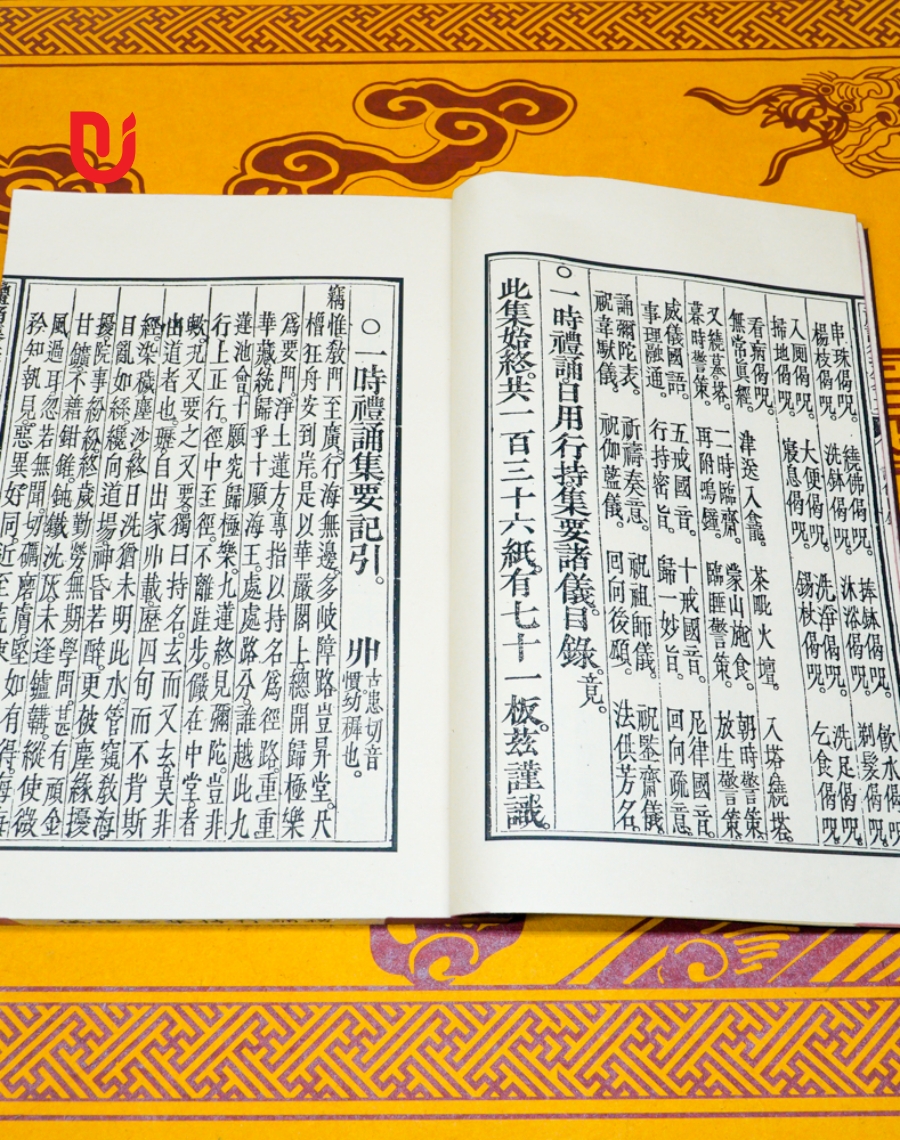 串珠偈咒。繞佛偈咒。捧鉢偈咒。飲水偈咒。
楊枝偈咒。洗鉢偈咒。沐浴偈咒。剃髮偈咒。
入厠偈咒。大便偈咒。洗淨偈咒。洗足偈咒。
掃地偈咒。寢息偈咒。錫杖偈咒。乞食偈咒。
看病偈咒。
無常眞經。津送入龕。茶毗火壇。入塔繞塔。
又繞墓塔。二時臨齋。蒙山施食。朝時警策。
暮時警策。再附鳴鐘。臨睡警策。放生警策。
威儀國語。五戒國音。十戒國音。尼律國音。
事理融通。行持密旨。歸一妙旨。回向疏意。
誦彌陀表。祈禱奏意。祝祖師儀。祝監齋儀。
祝韋馱儀。祝伽藍儀。回向後願。法供芳名。
○一時禮誦。日用行持集要諸儀。目錄。竟。
此集始終。共一百三十六紙。有七十一板。茲謹識。
○一時禮誦集要記引。丱古患切音慣。幼穉也。
竊惟敎門至廣。行海無邊。多岐障路。豈昇堂。尺
檣狂舟。安到岸。是以華嚴閣上。總開歸極樂
爲要門。淨土蓮方。專指以持名爲徑路。重重
華藏。統歸乎十願海王。處處路分。誰越此九
蓮池會。十願究歸極樂。九蓮終見彌陀。豈非
行上正行。徑中至徑。不離跬步。儼在中堂。者
歟。況又要之又要。獨曰持名。玄而又玄。莫非
由道者也。壓自出家丱載。歷四旬而不背斯
經。染穢塵沙。終日洗猶未明此水。管窺敎海。
目亂如絲。纔向道場。神昏若醉。更被塵緣擾
擾。院事紛紛。終歲勤勞。無期學問。甚有頑金
甘鑛。不藉鉗錘。鈍鐵沈灰。未逢鑪韛。縱使微
風過耳。忽若無聞。切礪磨膚。堅如有得。
矜知執見。惡異好同。近至